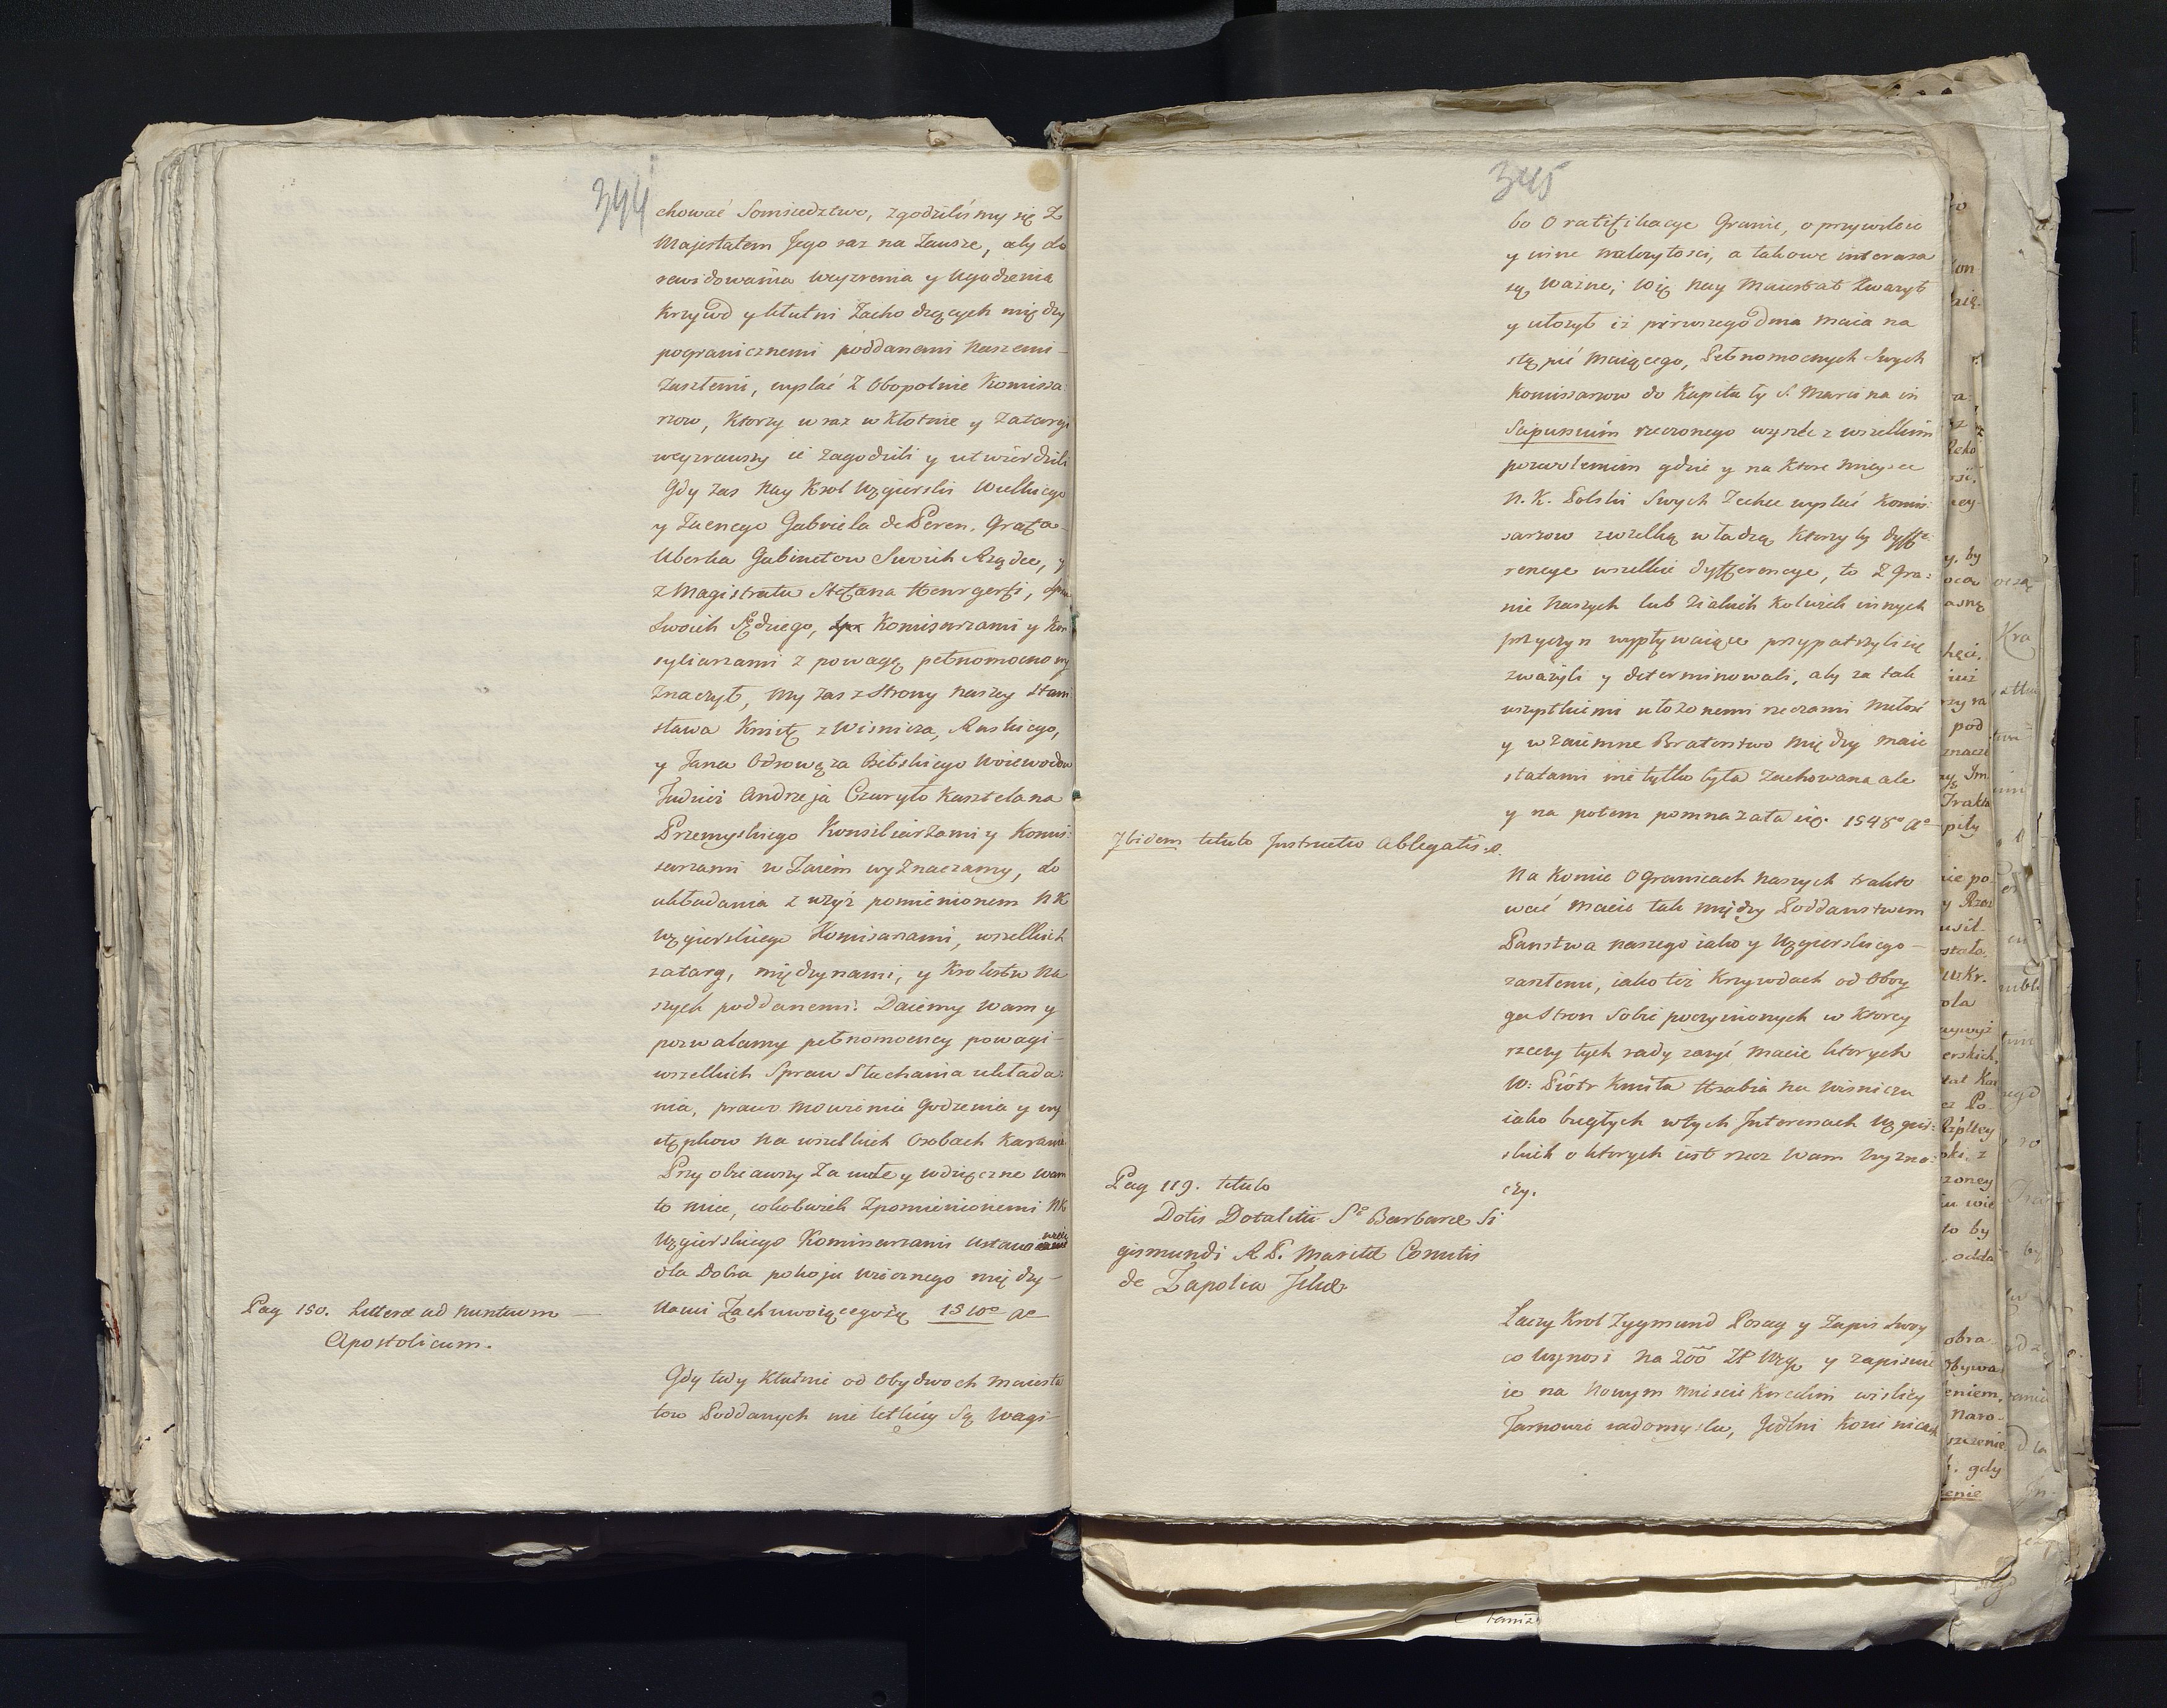 344
chować Somsiedztwo, zgodziliśmy się z
Majestatem Jego raz na zawsze, aby do
rewidowania weyzrenia y Ugodzenia
Krzywd y kłutni Zachodzących między
pogranicznemi poddanemi Naszemi
zaszłemi, wysłać z Obopolnie Komissa:
rzow, Ktorzy wraz w Kłotnie y Zatargi
weyzrawszy ie zagodzili y utwierdzili
Gdy zas Nay Krol Węgierski Wielkiego
y Zacnego Gabriela de Peren. Grafa
Uberka Gabinetow Swoich Rządce, y
z Magistratu Stefana
Swoich Sędziego, Komisarzami y Kon
syliarzami z powagą pełnomocno wy
Znaczył, My zas z strony naszey Stani
sława Kmitę z Wisnicza, Ruskiego,
y Jana Odrowąża Bełskiego Woiewodow
Tudzież Andrzeja Czuryło Kasztelana
Przemyskiego Konsiliarzami y Komis:
sarzami w Zaiem wyznaczamy, do
układania z wzyż pomienionem NK
Węgierskiego Komisarzami, wszelkich
zatarg, między nami, y Krolestw Na
szych poddanemi: Daiemy Wam y
pozwalamy pełnomocney powagi
wszelkich Spraw Słuchania układa:
nia, prawo mowienia Godzenia y wy
stępkow na wszelkich Osobach Karania
Przyobiecawszy za miłe y wdzięczne Wam
to miec, cokolwiek z pomienionemi NK
Węgierskiego Kommissarzami Ustano
dla Dobra pokoju wiecznego między
Pag 150. Litterae ad Nuntium
Apostolicum.
Nami 1510o Ao
Gdy tedy Kłutnie od Obydwoch Maiesta
tow Poddanych nie letkiey Są Wagi
345
bo O ratifikacye Granic, o przywileie
y inne należytości, a takowe interessa
są Ważne; Więc Nay Maiestat zważył
y ułożył iż pierwszego dnia Maia na
stąpić Maiącego, Pełnomocnych Swych
Komissarzow do Kapituły S. Marcina in
Scipusium rzeczonego wyszle z wszelkim
pozwoleniem gdzie y na Ktore Mieysce
N. K. Polski Swych Zechce wysłać Komis:
sarzow zwszelką władzą Ktorzy by dyffe:
rencye wszelkie dyfferencye, to z Gra:
nic Naszych lub z iakich Kolwiek innych
przyczyn wypływaiące przypatrzyli się
zważyli y determinowali, aby za tak
wszystkiemi ułożonemi rzeczami Miłość
y wzaiemne Braterstwo między Maie
statami nie tylko była zachowana ale
y na potem pomnażała się. 1548o Ao
Ibidem titulo Instructio Ablegatis.
Na Koniec O Granicach Naszych trakto
wać Macie tak między Poddaństwem
Państwa naszego iako y Węgierskiego
zaszłemi, iako też Krzywdach od Oboy
ga Stron Sobie poczynionych w Ktorey
rzeczy tych rady zażyć Macie ktorych
W: Piotr Kmita Hrabia na Wisniczu
iako biegłych w tych Interessach Węgier:
skich o ktorych iest rzecz Wam wyzna:
czy.
Pag 119. titulo
Dotis Dotalitii Sae Barbarae Si
gismundi R P. Maritae Comitis
de Zapolia Filiae
Łączy Krol Zygmund Posag y Zapis Swoy
co wynosi na 200 Zł Węg. y zapisuie
ie na Nowym Mieście Korczin wislicy
radomyslu, Jedlni